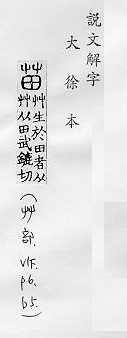 說文解字
大徐本
苗
艸生於田者从
艸从田武鑣切
（艸部.
VF.
p6.
b5.）